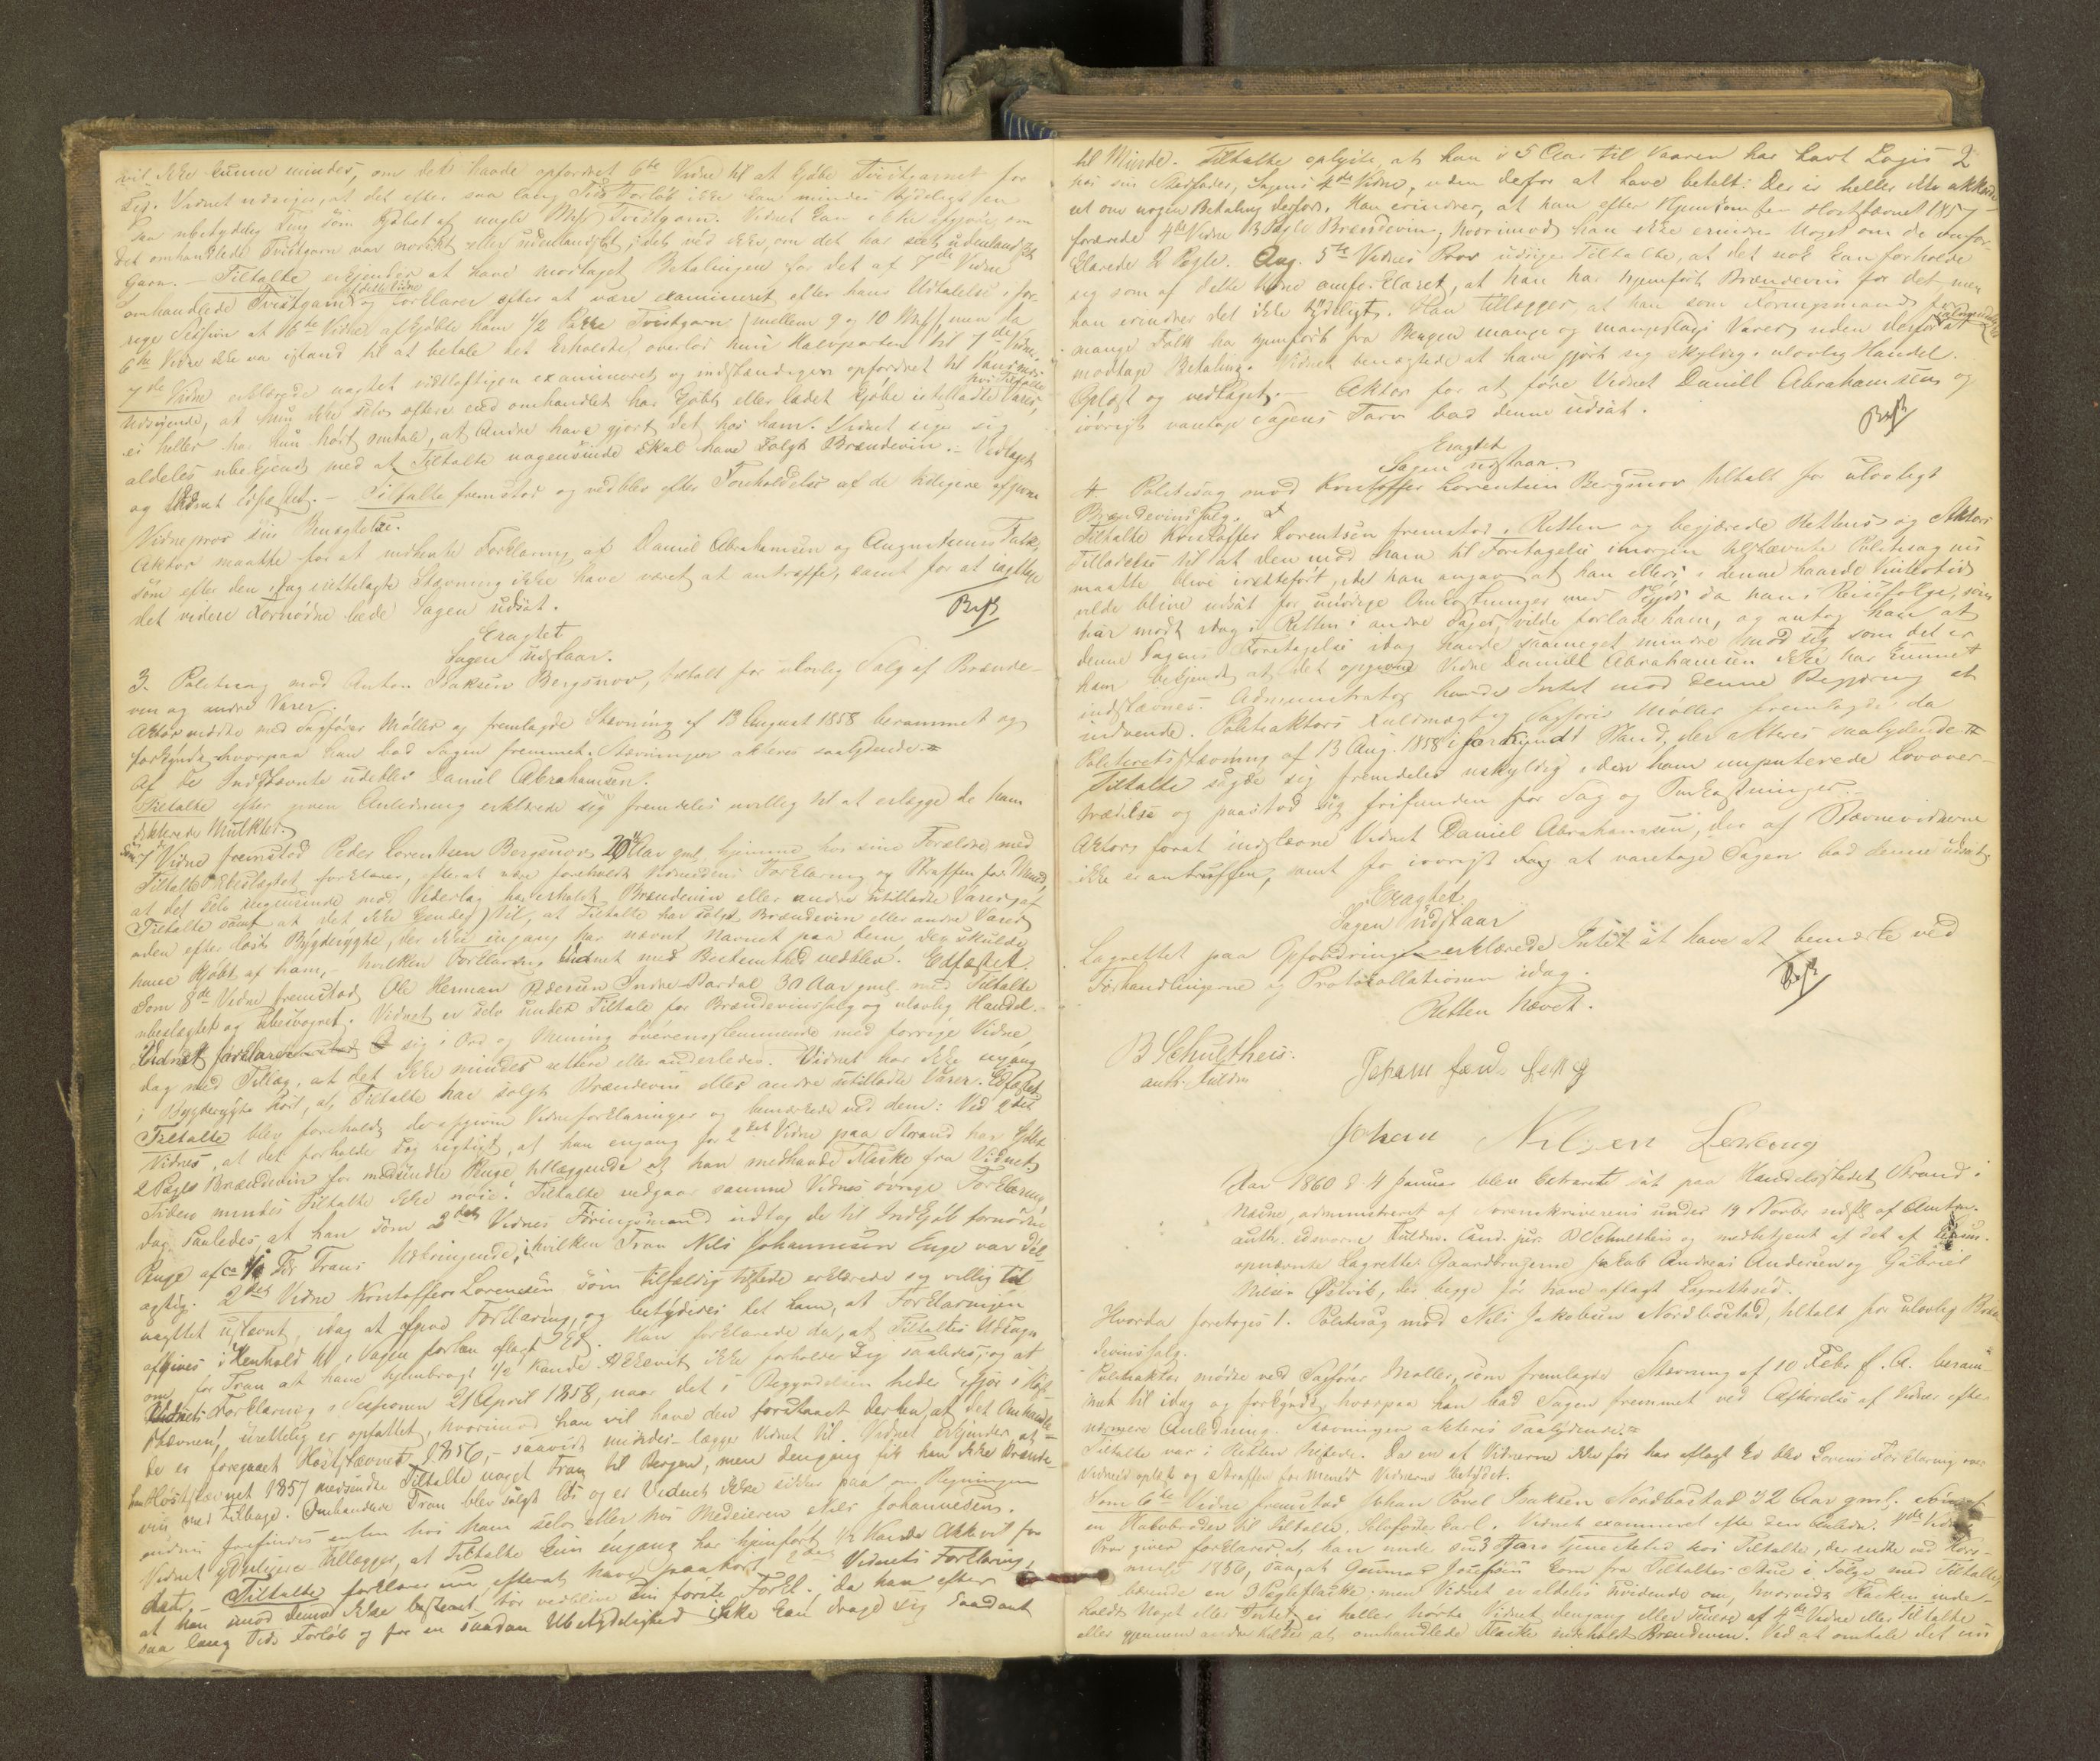 vil ikke kunne mindes, om det havde opfordret 6te Vidne til at kjøbe Tvistgarnet for
sig. Vidnet udsiger, at det efter saa lang Tids Forløb ikke kan mindes tydeligt en
saa ubetydelig Ting som Kjøbet af nogle Mrk Tvistgarn. Vidnet kan ikke opgive, om
det omhandlede Tvistgarn var norskt eller udenlandskt, idet det ikke véd, om det har seet udenlandskt
Garn. – Tiltalte erkjender at have modtaget Betalingen for det af 7de Vidne
omhandlede Tvistgarn af dette Vidne og forklarer efter at være examineret efter hans Udtalelse i for-
rige Session at 6te Vidne afkjøbte ham 1/2 Pakke Tvistgarn (mellem 9 og 10 Mrk) men da
6te Vidne ikke var istand til at betale det Erholdte, overlod hun Halvparten til 7de Vidne.
7de Vidne erklærede uagtet vidtløftigen examineret og indstændigen opfordret til Sandheds
Udsigende, at hun ikke selv oftere end omhandlet har kjøbt eller ladet kjøbe hos Tiltalte utilladte Varer,
ei heller har hun hørt omtale, at Andre have gjort det hos ham. Vidnet siger sig
aldeles ubekjendt med at Tiltalte nogensinde skal have solgt Brændevin. – Vedtaget
og Vidnet edfæstet. – Tiltalte fremstod og vedblev efter Foreholdelse af de tidligere afgivne
Vidneprov sin Benægtelse.
Aktor maatte for at indhente Forklaring af Daniel Abrahamsen og Augustinus Falk,
som efter den idag irettelagte Stævning ikke have været at antræffe, samt for at iagttage
det videre Fornødne bede Sagen udsat.
Eragtet
Sagen udstaar.
3. Politisag mod Anton Isaksen Bergsnov, tiltalt for ulovlig Salg af Brænde-
vin og andre Varer.
Aktor mødte ved Sagfører Møller og fremlagde Stævning af 13 August 1858 berammet og
forkyndt, hvorpaa han bad Sagen fremmet. Stævningen akteres saalydende =
Af de Indstævnte udeblev Daniel Abrahamsen.
Tiltalte efter given Anledning erklærede sig fremdeles uvillig til at erlægge de ham
dikterede Mulkter.
Som 7de Vidne fremstod Peder Lorentsen Bergsnov 20 Aar gml, hjemme hos sine Forældre med
Tiltalte ubeslægtet, forklarer, efterat være foreholdt Vidneedens Forklaring og Straffen for Meneed,
at det selv ingensinde mod Vederlag har erholdt Brændevin eller andre utilladte Varer af
Tiltalte samt at det ikke kjender til, at Tiltalte har solgt Brændevin eller andre Varer
uden efter løst Bygderygte, der ikke engang har nævnt Navnet paa dem, der skulde
have kjøbt af ham, – hvilken Forklaring Vidnet med Bestemthed vedblev. Edfæstet.
Som 8de Vidne fremstod Ole Herman Pedersen Indre-Bardal 30 Aar gml. med Tiltalte
ubeslægtet og ubesvogret. Vidnet er selv under Tiltale for Brændevinssalg og ulovlig Handel.
Vidnet forklarer sig i Ord og Mening overensstemmende med forrige Vidne,
dog med Tillæg, at det ikke mindes rettere eller anderledes. Vidnet har ikke engang
i Bygderygte hørt, at Tiltalte har solgt Brændevin eller andre utilladte Varer. Edfæstet
Tiltalte blev foreholdt de afgivne Vidneforklaringer og bemærkede ved dem: Ved 2det
Vidnes, at det forholder sig rigtigt, at han engang for 2det Vidne paa Strand har kjøbt
2 Pægle Brændevin for medsendte Penge tillæggende at han medhavde Flaske fra Vidnet.
Tiden mindes Tiltalte ikke nøie. Tiltalte vedgaar samme Vidnes øvrige Forklaring
dog saaledes, at han som 2det Vidnes Føringsmand udtog de til Indkjøb fornødne
Penge af ca 1/2 Td. Tran Udbringende, i hvilken Tran Nils Johannesen Enge var del-
agtig. 2det Vidne Kristoffer Lorentsen som tilfældig tilstede erklærede sig villig til
uagtet ustevnt, idag at afgive Forklaring, og betydedes det ham, at Forklaringen
afgives i Henhold til i Sagen forhen aflagt Ed. Han forklarede da, at Tiltaltes Udsagn
om for Tran at have hjembragt 1/2 Kande Akkevit ikke forholder sig saaledes, og at
Vidnets Forklaring i Sessionen 21 April 1858, naar det i Begyndelsen heder „ifjor i Høst-
stævnen", urettelig er opfattet, hvorimod han vil have den forstaaet derhen, at det Omhandle-
de er foregaaet Høststævnet 1856, – saavidt mindes – lægge Vidnet til. Vidnet erkjender, at
han Høststævnet 1857 medsendte Tiltalte noget Tran til Bergen, men dengang fik han ikke Brænde-
vin med tilbage. Omhandlede Tran blev solgt løs og er Vidnet ikke sikker paa om Regningen
endnu forefindes enten hos ham selv eller hos Medeieren Nils Johannesen.
Vidnet ydermere tillægger, at Tiltalte kun éngang har hjemført 1/2 Kande Akkevit for
det. – Tiltalte forklarer nu, efterat have paahørt 2det Vidnets Forklaring,
at han imod denne ikke bestemt tør vedblive sin første Forkl., da han efter
saa lang Tids Forløb og for en saadan Ubetydelighed ikke kan drage sig Saadant
2
til Minde. Tiltalte oplyste, at han i 5 Aar til Vaaren har havt Logis
hos sin Stedfader, Sagens 4de Vidne, uden derfor at have betalt. Der er heller ikke akkor-
eret om nogen Betaling derfor. Han erindrer, at han efter Hjemkomsten Høststævnet 1857
forærede 4de Vidne 3 Pægle Brændevin, hvorimod han ikke erindrer Noget om de omfor-
klarede 2 Pægle. Ang. 5te Vidnes Prov udsiger Tiltalte, at det nok kan forholde
sig som af dette Vidne omforklaret, at han har hjemført Brændevin for det, men
han erindrer det ikke tydeligt. Han tillægger, at han som Føringsmand for
mange Folk har hjemført fra Bergen mange og mangeslags Varer, uden derfor at
modtage Betaling. Vidnet benægtede at have gjort sig skyldig i ulovlig Handel.
Oplæst og vedtaget. – Aktor for at føre Vidnet Daniel Abrahamsen og
iøvrigt varetage Sagens Tarv bad denne udsat.
Eragtet
Sagen udstaar.
4. Politisag mod Kristoffer Lorentsen Bergsnov tiltalt for ulovligt
Brændevinssalg.
Tiltalte Kristoffer Lorentsen fremstod i Retten og begjærede Rettens og Aktors
Tilladelse til at den mod ham til Foretagelse imorgen tilstævnte Politisag nu
maatte blive iretteført, idet han angav at han ellers i denne haarde Vintertid
vilde blive udsat for unødige Omkostninger med Skyds da hans Reisefølge, som
har mødt idag i Retten i andre Sager, vilde forlade ham, og antog han at
denne Sags Foretagelse idag havde saameget mindre mod sig som det er
ham bekjendt at det opgivne Vidne Daniel Abrahamsen ikke har kunnet
indstævnes. Administrator havde Intet mod denne Begjæring at
indvende. Politiaktors Fuldmægtig Sagfører Møller fremlagde da
Politiretsstævning af 13 Aug. 1858 i forkyndt Stand, der akteres saalydende =
Tiltalte sagde sig fremdeles uskyldig i den ham imputerede Lovover-
trædelse og paastod sig frifunden for Sag og Omkostninger. –
Aktor, forat indstævne Vidnet Daniel Abrahamsen, der af Stævnevidnerne
ikke er antruffen, samt for iøvrigt at varetage Sagen bad denne udsat.
Eragtet
Sagen udstaar
Lagrettet paa Opfordring erklærede Intet at have at bemærke ved
Forhandlingerne og Protokollationen idag.
Retten hævet.
B Schultheis.
auth. Fuldm
Johan
Johan Nilsen Leskong
Aar 1860 d 4 Januar blev Extraret sat paa Handelsstedet Strand i
Næsne, administreret af Sorenskriverens under 19 Novbr sidstl af Amtm.
auth. edsvorne Fuldm. Cand. jur. B Schultheis og medbetjent af det af
opnævnte Lagrette: Gaardbrugerne Jakob Andreas Andersen og Gabriel
Nilsen Østvik, der begge før have aflagt Lagrettesed.
Hvorda foretoges 1. Politisag mod Nils Jakobsen Nordbostad, tiltalt for ulovlig Bræn-
devinssalg.
Politiaktor mødte ved Sagfører Møller, som fremlagde Stævning af 10 Febr f. A. beram-
met til idag og forkyndt, hvorpaa han bad Sagen fremmet ved Afhørelse af Vidner efter
nærmere Anledning. Stævningen akteres saalydende. =
Tiltalte var i Retten tilstede. Da en af Vidnerne ikke før har aflagt Ed blev Lovens Forklaring over
Vidneed oplæst og Straffen for Meneed Vidnerne betydet.
Som 6te Vidne fremstod Johan Povel Isaksen Nordbostad 32 Aar gml.
en Halvbroder til Tiltalte. Vidnet examineret efter den Anledn. 4de Vidnes
Prov giver forklarer, at han under sin 3 Aars Tjenestetid hos Tiltalte, der endte ved Kors-
messe 1856, saa, at Gunnar Josefsen kom fra Tiltaltes Stue i Følge med Tiltalte,
bærende en 3 Pægleflaske; men Vidnet er aldeles uvidende om, hvorvidt Flasken inde-
holdt Noget eller Intet, ei heller hørte Vidnet dengang eller senere af 4de Vidne eller Tiltalte
eller gjennem andre Kilder at omhandlede Flaske indeholdt Brændevin. Ved at omtale det nu